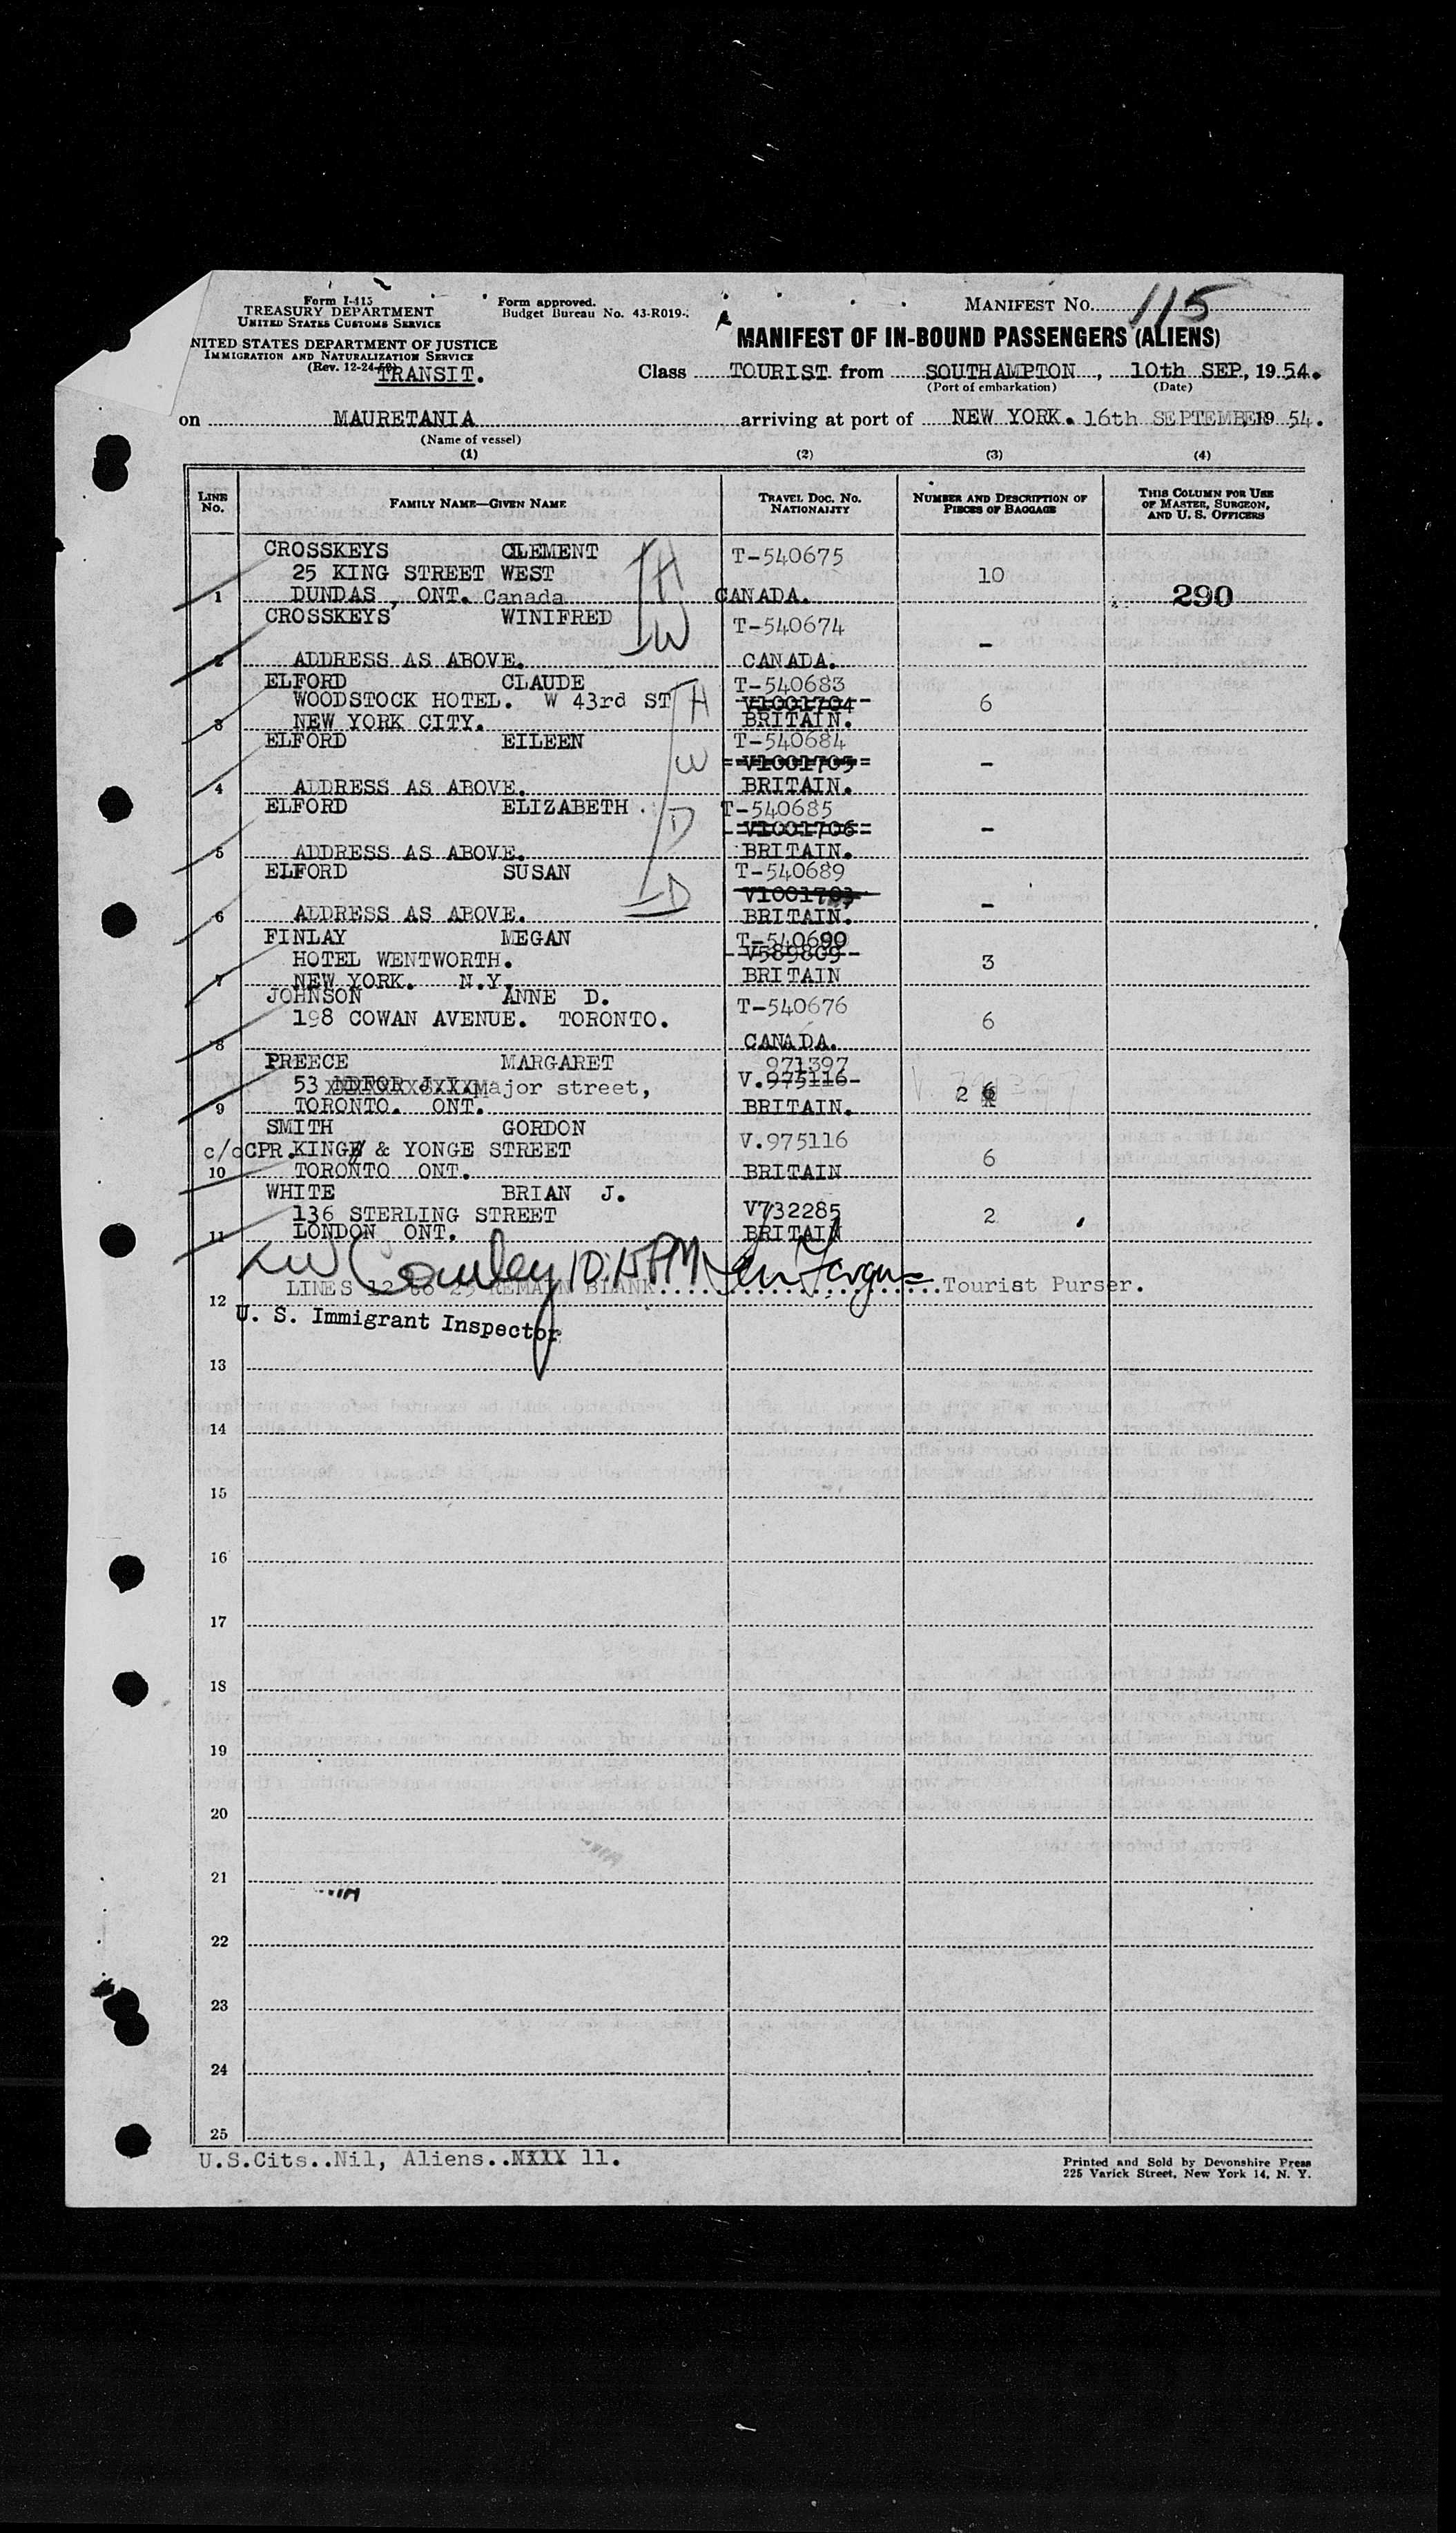 Form I-415
TREASURY DEPARTMENT
UNITED STATES CUSTOMS SERVICE
NITED STATES DEPARTMENT OF JUSTICE
IMMIGRATION AND NATURALIZATION SERVICE
(Rev. 12-24-52)
TRANSIT.
Form approved.
Budget Bureau No. 43-R019-
MANIFEST No. 115
MANIFEST OF IN-BOUND PASSENGERS (ALIENS)
Class TOURIST from SOUTHAMPTON, 10th SEP, 1954.
(Port of embarkation) (Date)
on MAURETANIA arriving at port of NEW YORK. 16th SEPTEMBER 1954.
(Name of vessel)
(1) (2) (3) (4)
LINE No. FAMILY NAME—GIVEN NAME TRAVEL DOC. NO. NATIONALITY NUMBER AND DESCRIPTION OF PIECES OF BAGGAGE THIS COLUMN FOR USE OF MASTER, SURGEON, AND U. S. OFFICERS
CROSSKEYS CLEMENT H T-540675
25 KING STREET WEST 10
1 DUNDAS, ONT. Canada CANADA. 290
CROSSKEYS WINIFRED W T-540674
–
2 ADDRESS AS ABOVE. CANADA.
ELFORD CLAUDE T-540683
WOODSTOCK HOTEL. W 43rd ST H V1001704 6
3 NEW YORK CITY. BRITAIN.
ELFORD EILEEN T-540684
W V1001705 –
4 ADDRESS AS ABOVE. BRITAIN.
ELFORD ELIZABETH. T-540685
D V1001706 –
5 ADDRESS AS ABOVE. BRITAIN.
ELFORD SUSAN T-540689
D –
6 ADDRESS AS ABOVE. BRITAIN.
FINLAY MEGAN T-540690
HOTEL WENTWORTH. V589809 3
7 NEW YORK. N.Y. BRITAIN
JOHNSON ANNE D. T-540676
198 COWAN AVENUE. TORONTO. 6
8 CANADA.
PREECE MARGARET 971397
53 Major street, V.975116 2
9 TORONTO. ONT. BRITAIN.
SMITH GORDON V.975116
c/o CPR. KING & YONGE STREET 6
10 TORONTO ONT. BRITAIN
WHITE BRIAN J. V732285
136 STERLING STREET 2
11 LONDON ONT. BRITAIN
10.15 PM
12 LINES 12 to 25 REMAIN BLANK. Tourist Purser.
U. S. Immigrant Inspector
13
14
15
16
17
18
19
20
21
22
23
24
25
U.S.Cits..Nil, Aliens.. 11.
Printed and Sold by Devonshire Press
225 Varick Street, New York 14, N. Y.